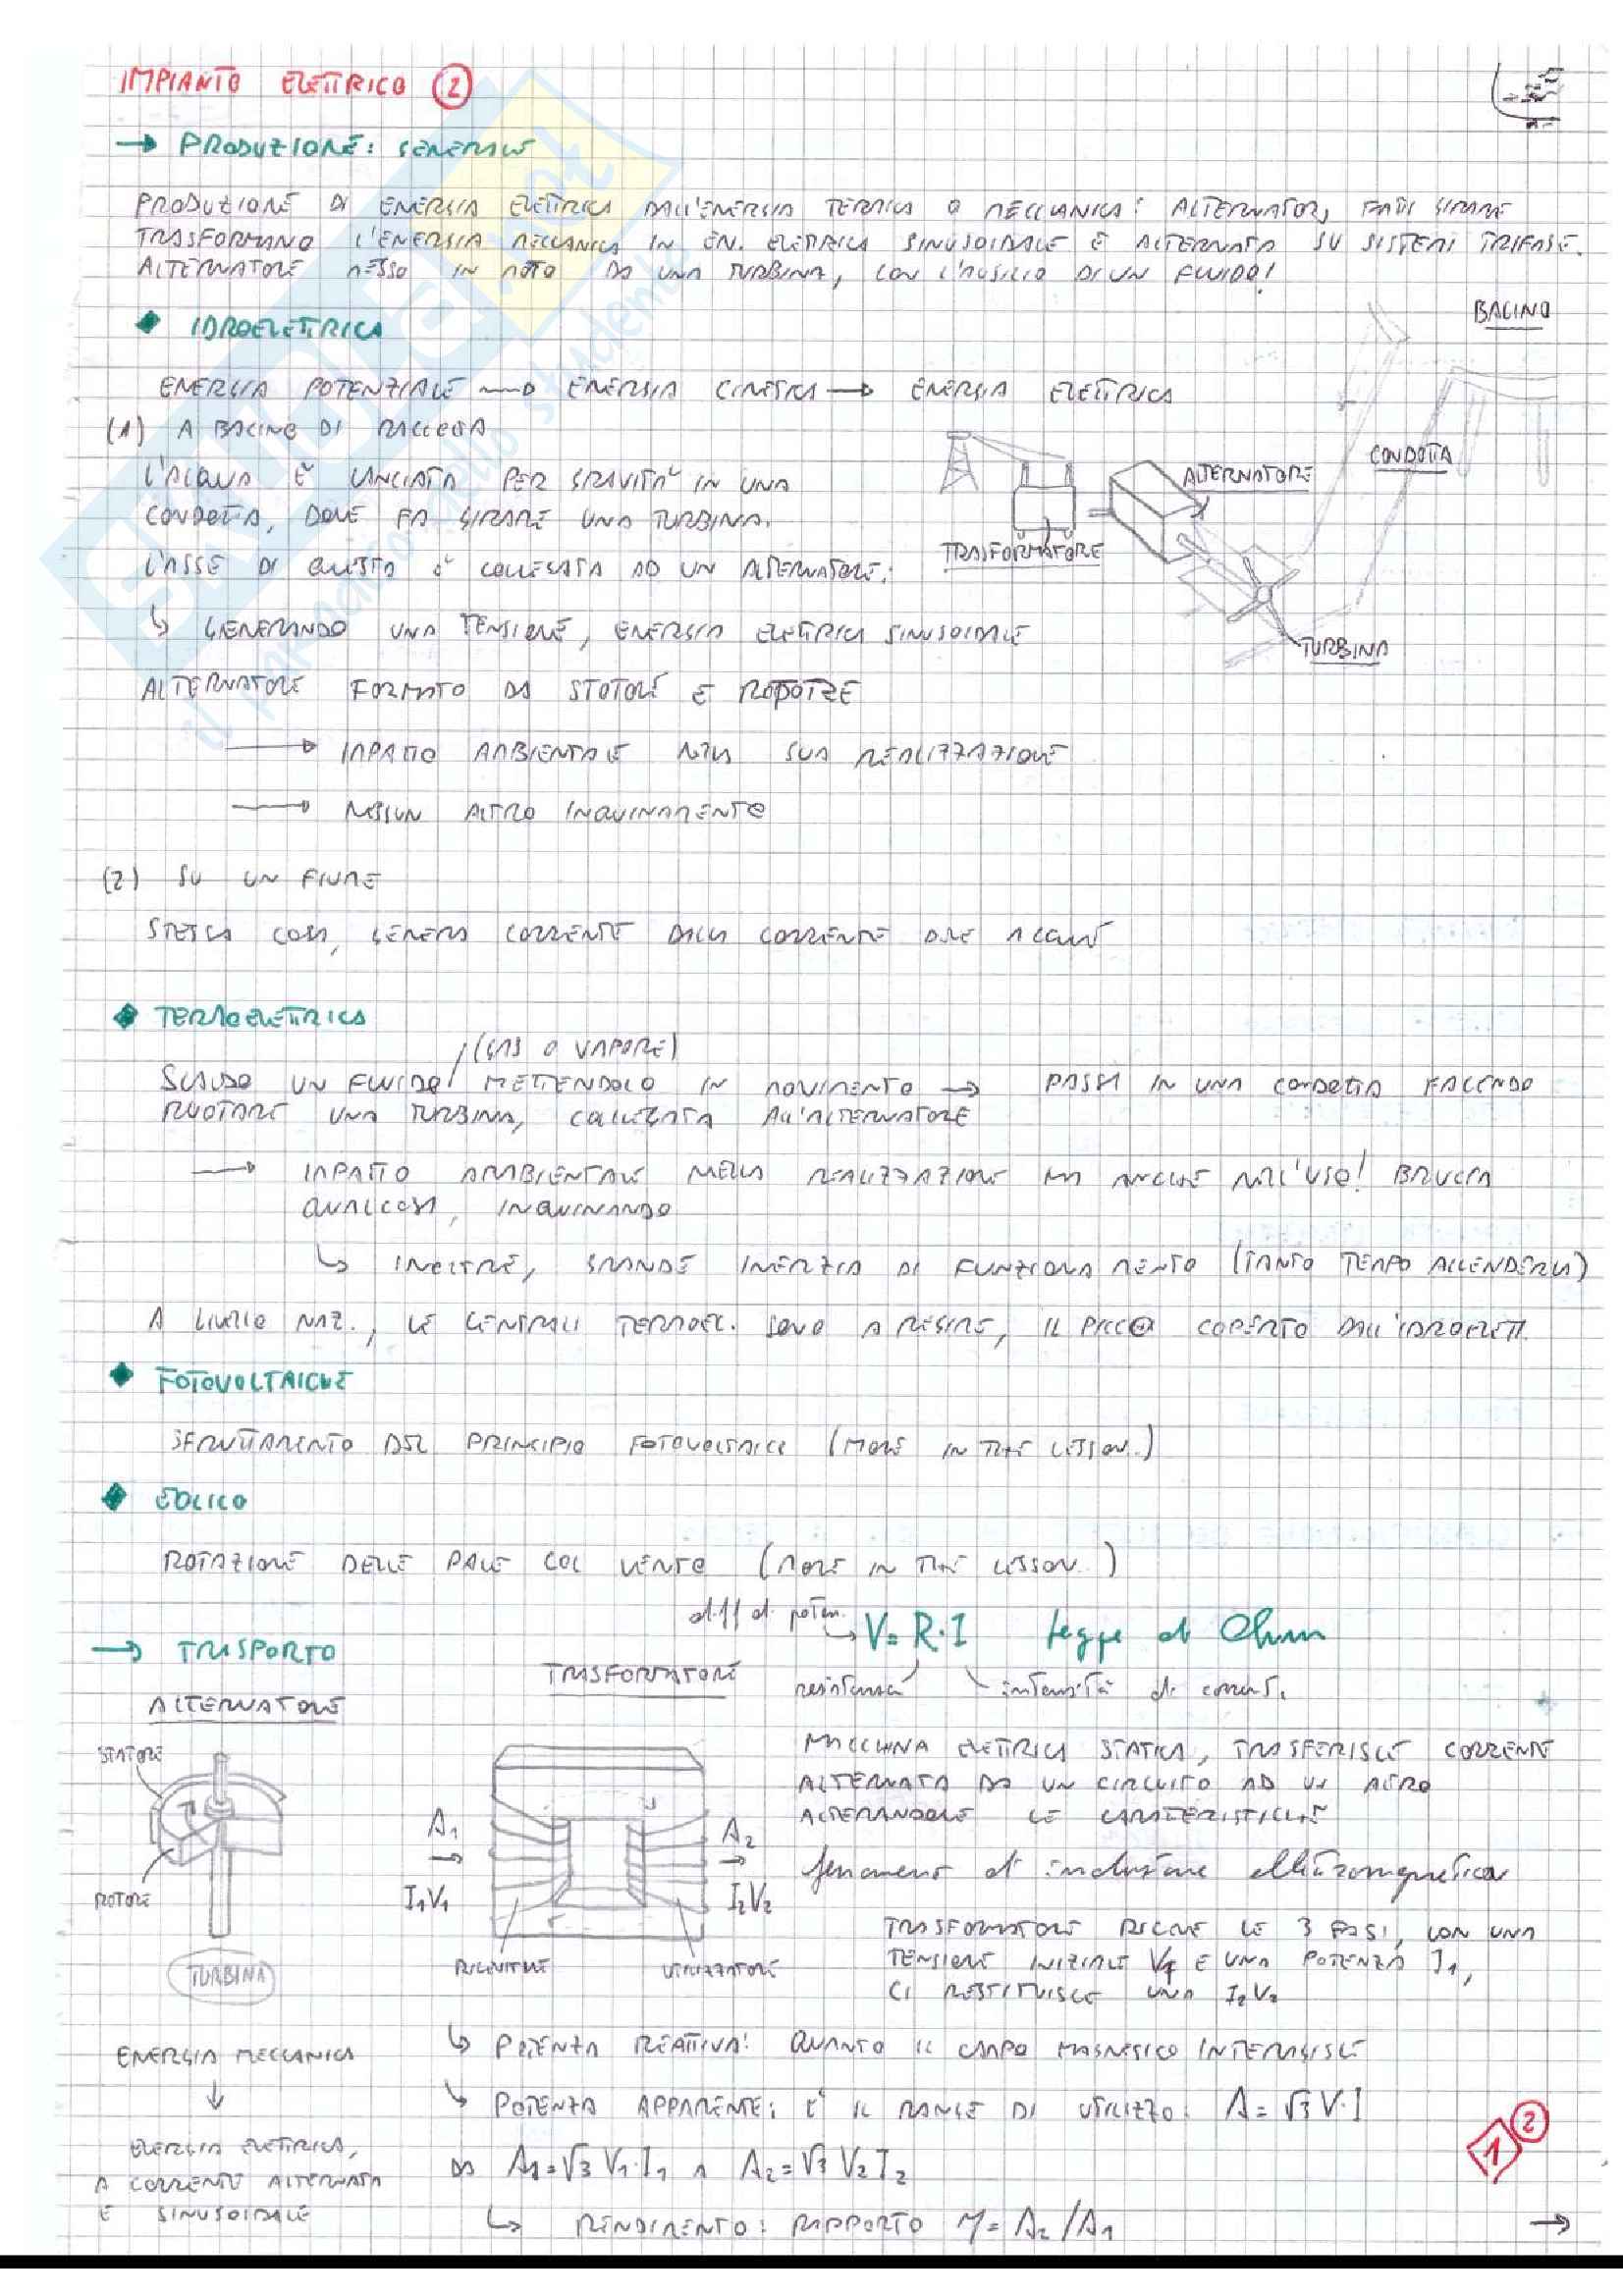 IMPIANTO ELETTRICO 2
→ PRODUZIONE: GENERALE
PRODUZIONE DI ENERGIA ELETTRICA DALL'ENERGIA TERMICA O MECCANICA: ALTERNATORI FATTI GIRARE
TRASFORMANO L'ENERGIA MECCANICA IN EN. ELETTRICA SINUSOIDALE E ALTERNATA SU SISTEMI TRIFASE.
ALTERNATORE MESSO IN MOTO DA UNA TURBINA, CON L'AUSILIO DI UN FLUIDO!
◆ IDROELETTRICA
BACINO
ENERGIA POTENZIALE → ENERGIA CINETICA → ENERGIA ELETTRICA
(1) A BACINO DI RACCOLTA
L'ACQUA È LANCIATA PER GRAVITÀ IN UNA
CONDOTTA, DOVE FA GIRARE UNA TURBINA.
L'ASSE DI QUESTA È COLLEGATA AD UN ALTERNATORE:
CONDOTTA
ALTERNATORE
TRASFORMATORE
TURBINA
↳ GENERANDO UNA TENSIONE, ENERGIA ELETTRICA SINUSOIDALE
ALTERNATORE FORMATO DA STOTORE E ROTOTRE
→ IMPATTO AMBIENTALE NELLA SUA REALIZZAZIONE
→ NESSUN ALTRO INQUINAMENTO
(2) SU UN FIUME
STESSA COSA, GENERA CORRENTE DALLA CORRENTE DELLE ACQUE
◆ TERMOELETTRICA
(GAS O VAPORE)
SCALDO UN FLUIDO METTENDOLO IN MOVIMENTO → PASSA IN UNA CONDOTTA FACENDO
RUOTARE UNA TURBINA, COLLEGATA ALL'ALTERNATORE
→ IMPATTO AMBIENTALE NELLA REALIZZAZIONE MA ANCHE NELL'USO! BRUCIA
QUALCOSA, INQUINANDO
↳ INOLTRE, GRANDE INERZIA DI FUNZIONAMENTO (TANTO TEMPO ACCENDERLA)
A LIVELLO NAZ., LE CENTRALI TERMOEL. SONO A REGIME, IL PICCO COPERTO DALL'IDROELETT.
◆ FOTOVOLTAICHE
SFRUTTAMENTO DEL PRINCIPIO FOTOVOLTAICO (MORE IN THE LESSON..)
◆ EOLICO
ROTAZIONE DELLE PALE COL VENTO (MORE IN THE LESSON..)
diff di poten. V = R·I legge di Ohm
→ TRASPORTO
TRASFORMATORE
resistenza intensità di corrent.
ALTERNATORE
STATORE
ROTORE
TURBINA
A₁
I₁V₁
A₂
I₂V₂
RICEVITORE
UTILIZZATORE
MACCHINA ELETTRICA STATICA, TRASFERISCE CORRENTE
ALTERNATA DA UN CIRCUITO AD UN ALTRO
ALTERANDONE LE CARATTERISTICHE
fenomeno di induzione elettromagnetica
TRASFORMATORE RICEVE LE 3 FASI, CON UNA
TENSIONE INIZIALE V₁ E UNA POTENZA I₁,
CI RESTITUISCE UNA I₂V₂
ENERGIA MECCANICA
↓
ENERGIA ELETTRICA,
A CORRENTE ALTERNATA
E SINUSOIDALE
↳ POTENZA REATTIVA: QUANTO IL CAMPO MAGNETICO INTERAGISCE
↳ POTENZA APPARENTE: È IL RANGE DI UTILIZZO. A = √3 V·I
DA A₁=√3 V₁·I₁ A A₂=√3 V₂I₂
↳ RENDIMENTO: RAPPORTO η = A₂/A₁
1 2
→